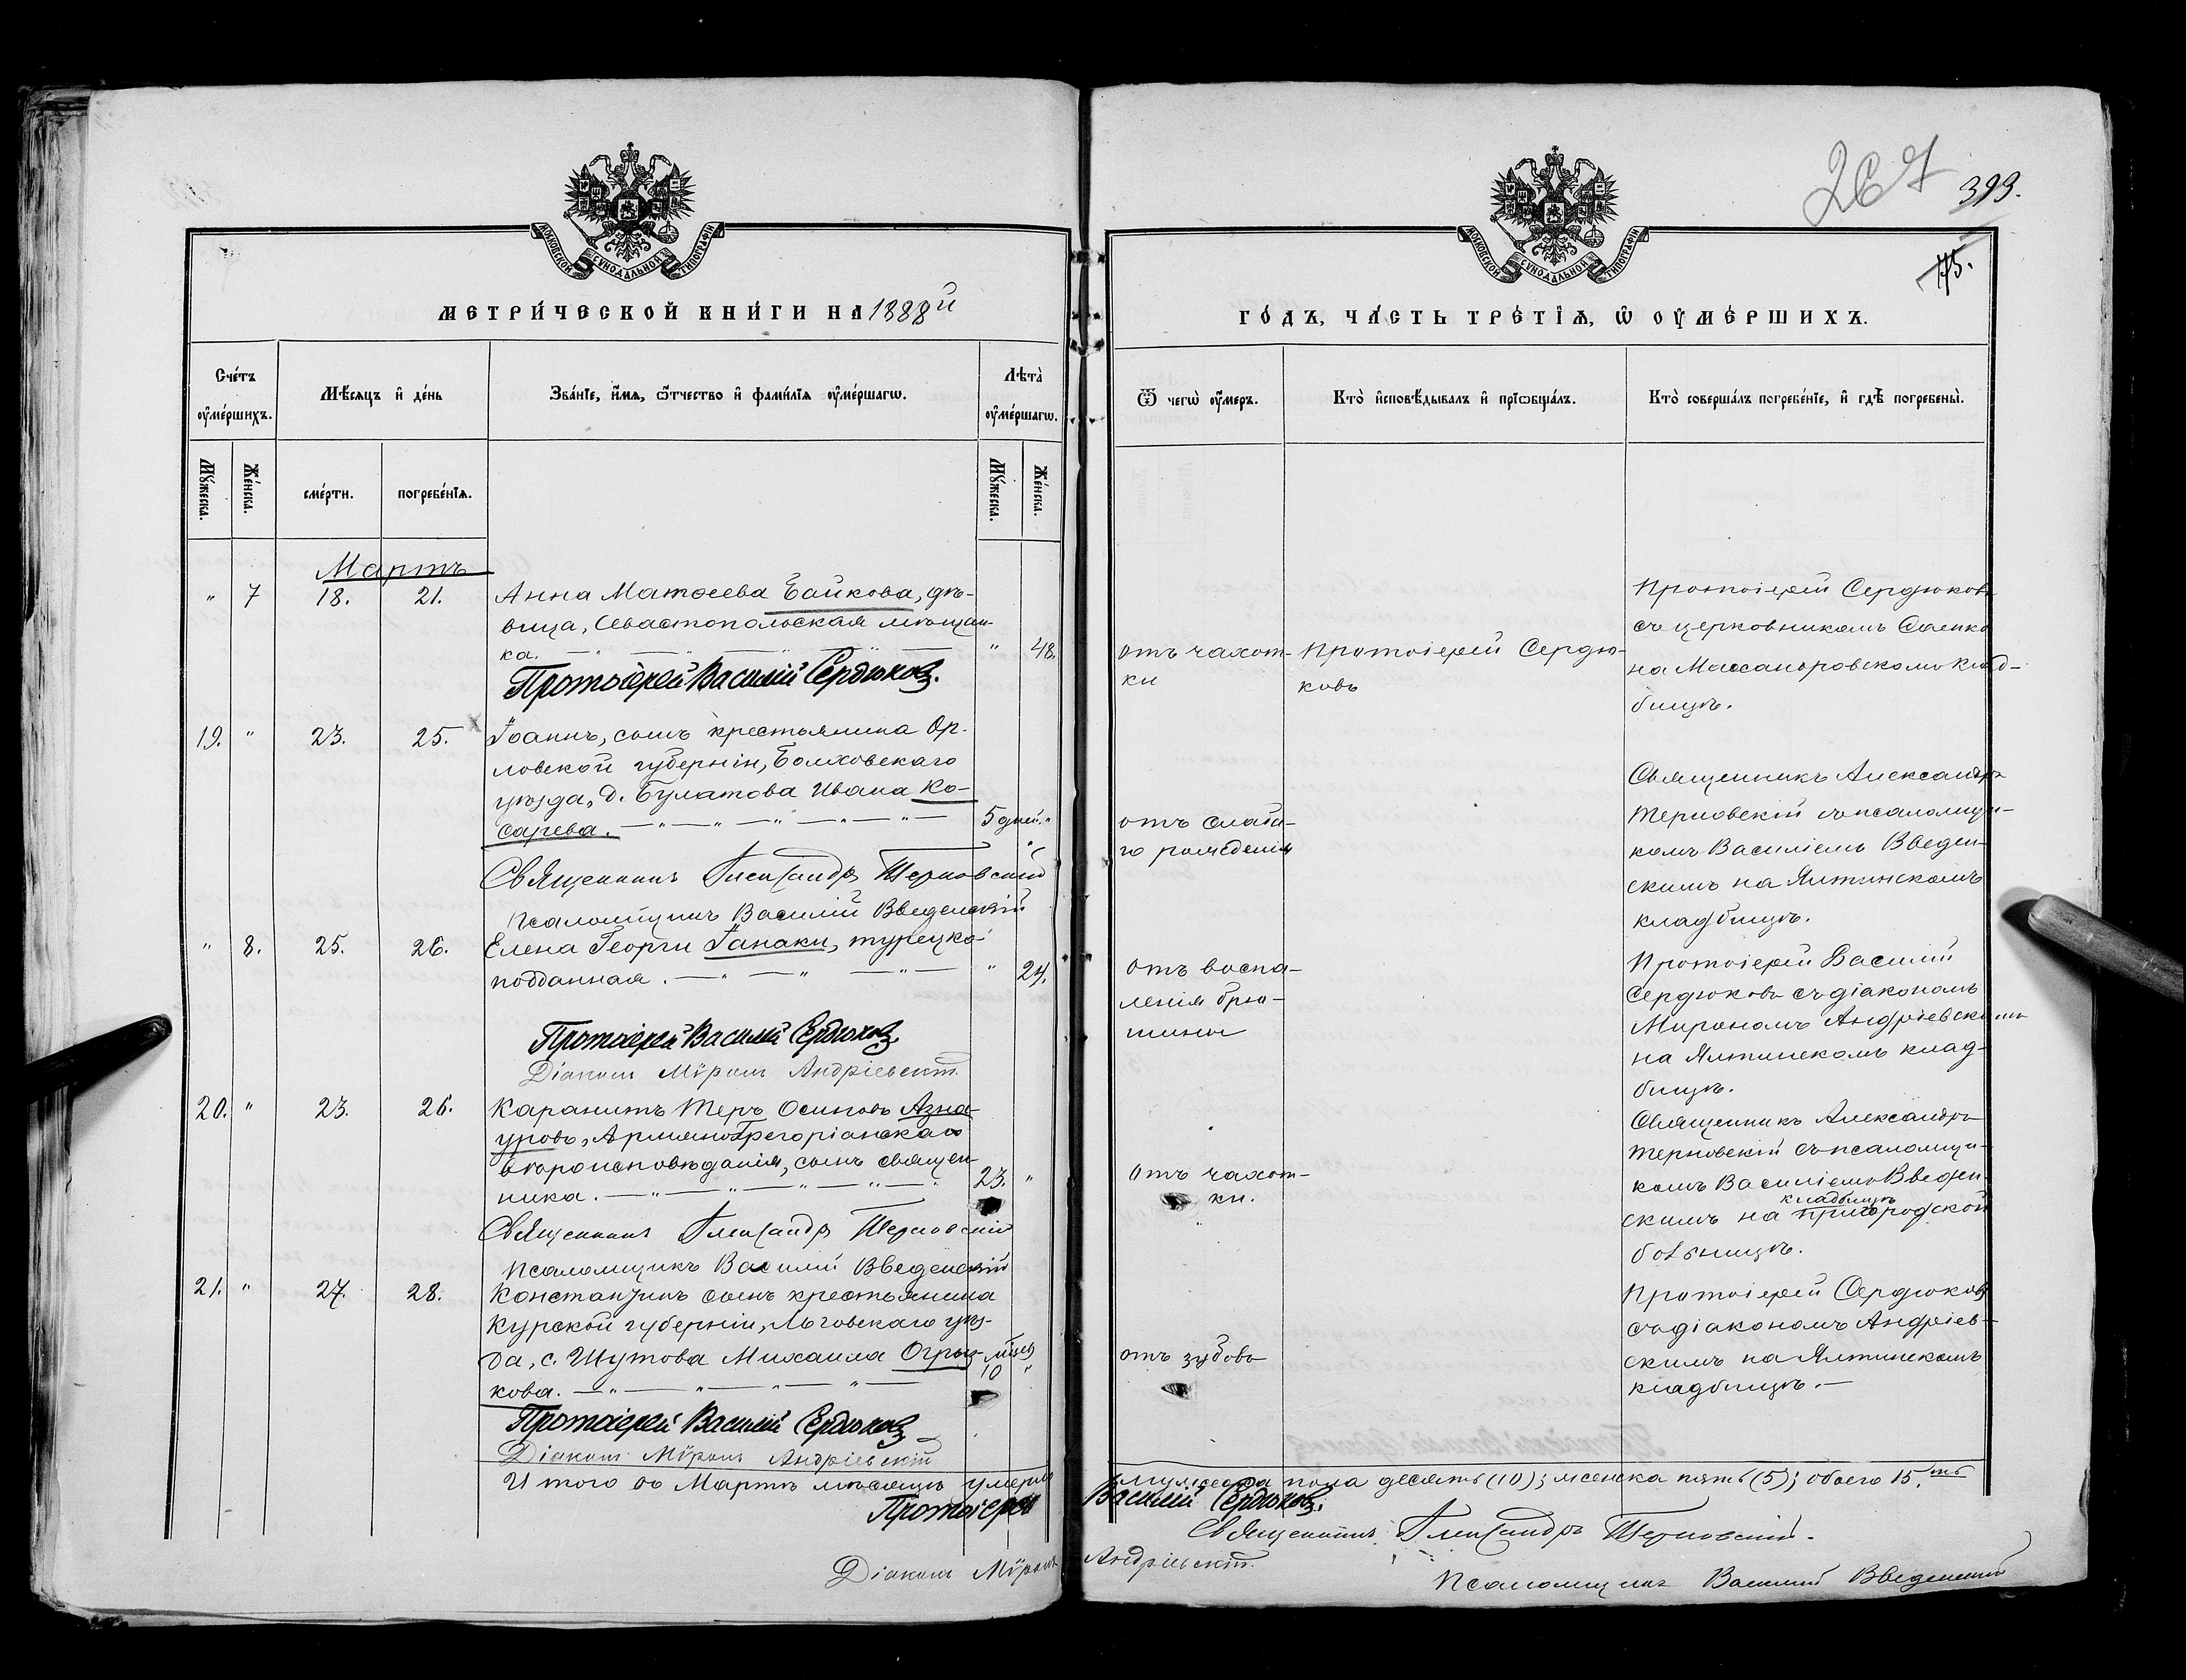 МОСКОВСКОЙ СУНОДАЛЬНОЙ ТИПОГРАФІИ
МЕТРИ́ЧЕСКОЙ КНИ́ГИ НА 1888й
Сче́тъ ᲂу҆ме́ршихъ.
Мѣ́сяцъ и҆ де́нь
Зва́нїе, и҆́мѧ, ѻ҆́тчество и҆ фами́лїѧ ᲂу҆ме́ршагѡ.
Лѣ́та ᲂу҆ме́ршагѡ.
Мꙋ́жеска.
Же́нска.
сме́рти.
погребе́нїѧ.
Мꙋ́жеска.
Же́нска.
Мартъ
" 7 18. 21. Анна Матѳеева Байкова, дѣ-
вица, Севастопольская мѣщан-
ка. " 48.
Протоіерей Василій Сердюковъ.
19. " 23. 25. Іоаннъ, сынъ крестьянина Ор-
ловской губерніи, Болховскаго
уѣзда, д. Булатова Ивана Ко-
сарева. 5 дней. "
Священникъ Александръ Терновскій
Псаломщикъ Василій Введенскій
" 8. 25. 26. Елена Георги Ганаки, турецко-
подданная. " 24.
Протоіерей Василій Сердюковъ
Діаконъ Мѵронъ Андріевскій
20. " 23. 26. Карапитъ Теръ Осиповъ Азна-
уровъ, Армяно Грегоріанскаго
вѣроисповѣданія, сынъ священ-
ника. 23. "
Священникъ Александръ Терновскій
Псаломщикъ Василій Введенскій
21. " 27. 28. Константинъ сынъ крестьянина
Курской губерніи, Льговскаго уѣз-
да, с. Шутова Михаила Огрыз-
кова. 10 "
Протоіерей Василій Сердюковъ
Діаконъ Мѵронъ Андріевскій
Итого въ Мартѣ мѣсяцѣ умерло
Протоіерей
Діаконъ Мѵронъ
267
393.
175.
МОСКОВСКОЙ СУНОДАЛЬНОЙ ТИПОГРАФІИ
ГО́ДЪ, ЧА́СТЬ ТРЕ́ТЇѦ, Ѡ҆ ОУ҆МЕ́РШИХЪ.
Ѿ чегѡ̀ ᲂу҆́меръ.
Кто̀ и҆сповѣ́дывалъ и҆ прїѡбща́лъ.
Кто̀ соверша́лъ погребе́нїе, и҆ гдѣ̀ погребены̀.
отъ чахот-
ки
Протоіерей Сердю-
ковъ
Протоіерей Сердюковъ
съ церковникомъ Саенко
на Массандровскомъ клад-
бищѣ.
отъ слаба-
го рожденія
Священникъ Александръ
Терновскій съ псаломщи-
комъ Василіемъ Введен-
скимъ на Ялтинскомъ
кладбищѣ.
отъ воспа-
ленія брю-
шины
Протоіерей Василій
Сердюковъ съ діакономъ
Мирономъ Андріевскимъ
на Ялтинскомъ клад-
бищѣ.
отъ чахот-
ки.
Священникъ Александръ
Терновскій съ псаломщи-
комъ Василіемъ Введен-
кладбищѣ
скимъ на при городской
больницѣ.
отъ зубовъ
Протоіерей Сердюковъ
съ діакономъ Андріев-
скимъ на Ялтинскомъ
кладбищѣ.
мужеска пола десять (10); женска пять (5); обоего 15.ть
Василій Сердюковъ.
Священникъ Александръ Терновскій.
Андріевскій.
Псаломщикъ Василій Введенскій